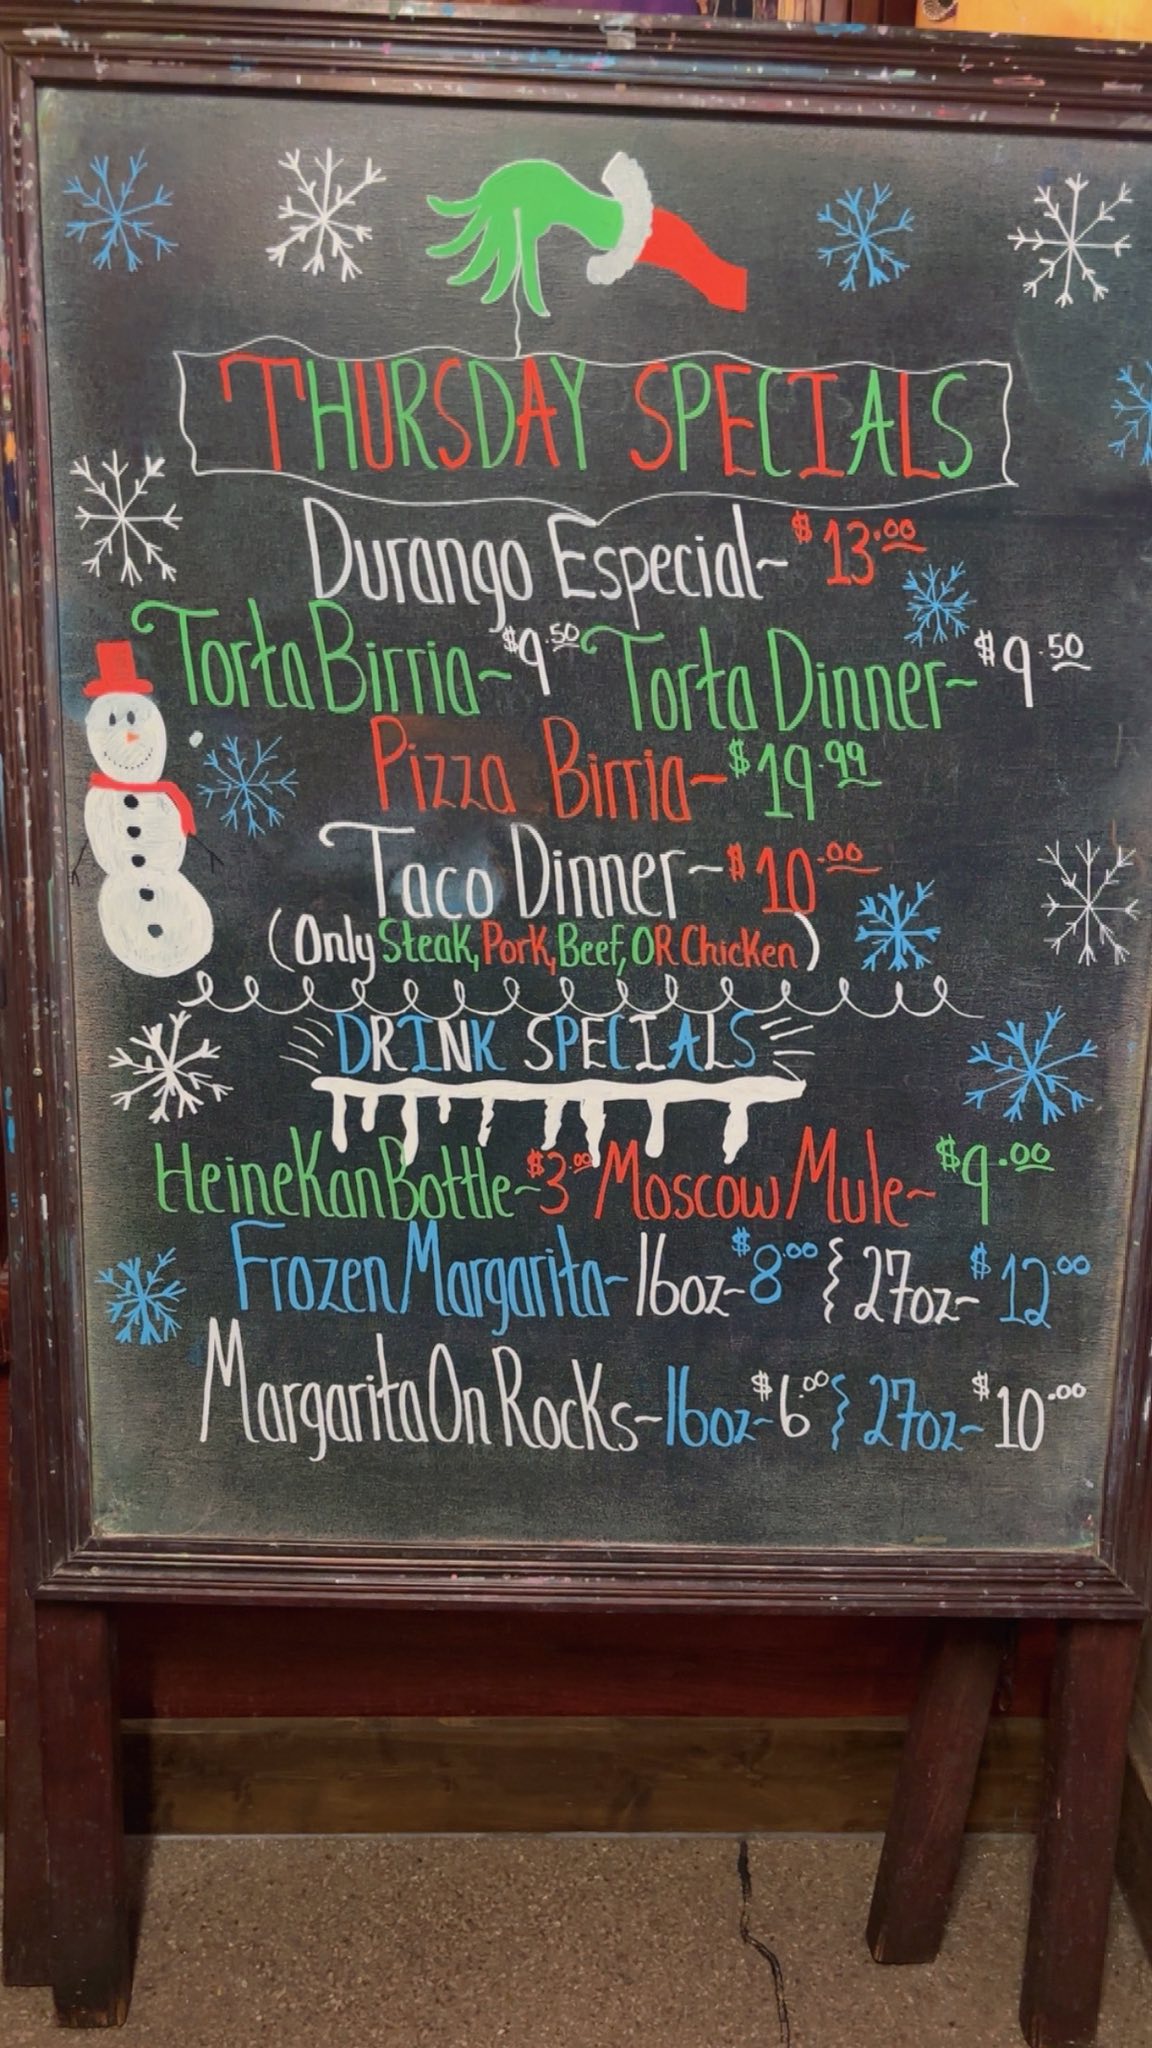 THURSDAY SPECIALS
Durango Especial~ $13.00
Torta Birria~ $9.50 Torta Dinner~ $9.50
Pizza Birria~ $19.99
Taco Dinner~ $10.00
(Only Steak, Pork, Beef, OR Chicken)
DRINK SPECIALS
HeineKan Bottle~ $3.00 Moscow Mule~ $9.00
Frozen Margarita~ 16oz~ $8.00 } 27oz~ $12.00
Margarita On Rocks~ 16oz~ $6.00 } 27oz~ $10.00